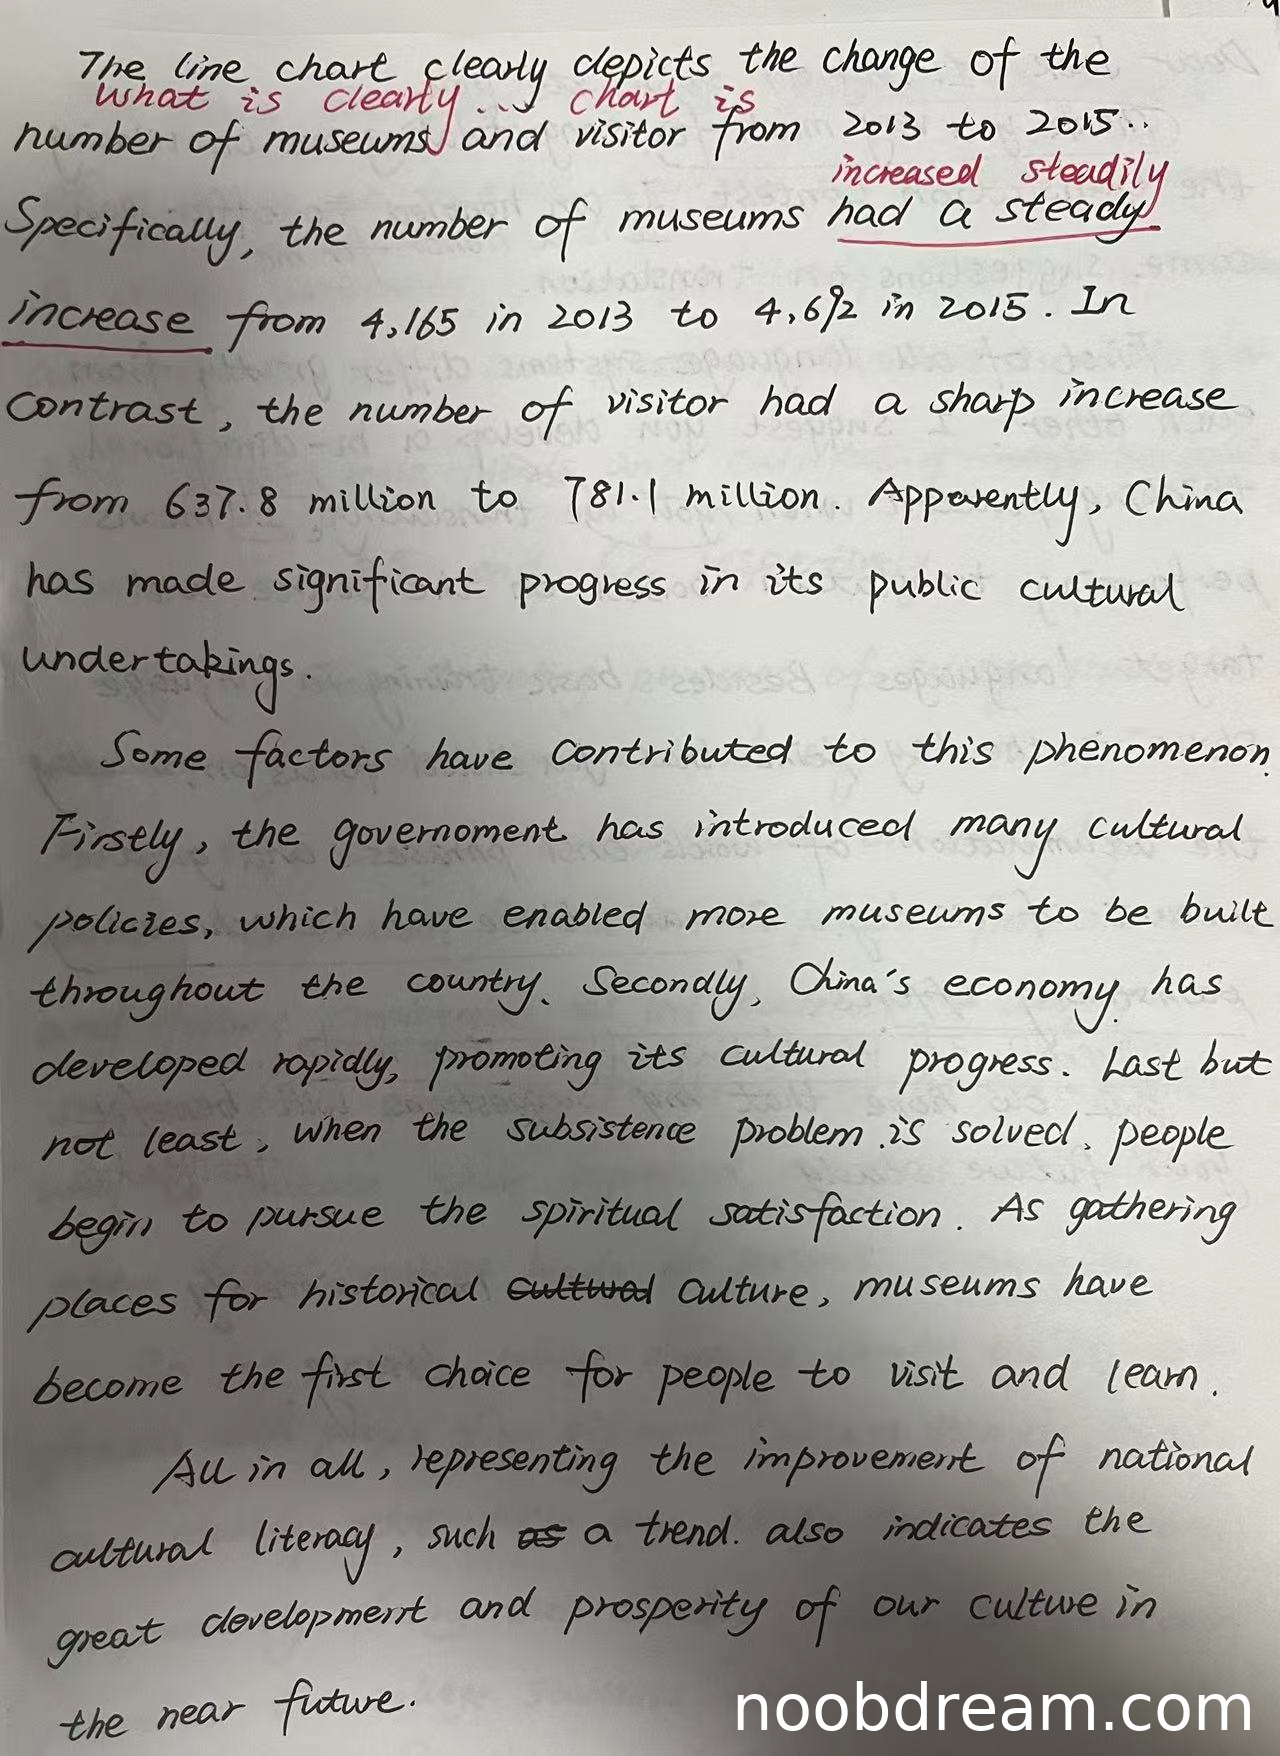 The line chart clearly depicts the change of the
What is clearly... chart is
number of museums and visitor from 2013 to 2015..
increased steadily
Specifically, the number of museums had a steady
increase from 4,165 in 2013 to 4,692 in 2015. In
contrast, the number of visitor had a sharp increase
from 637.8 million to 781.1 million. Apparently, China
has made significant progress in its public cultural
undertakings.
Some factors have contributed to this phenomenon.
Firstly, the governoment has introduced many cultural
policies, which have enabled more museums to be built
throughout the country. Secondly, China's economy has
developed rapidly, promoting its cultural progress. Last but
not least, when the subsistence problem is solved, people
begin to pursue the spiritual satisfaction. As gathering
places for historical cultural culture, museums have
become the first choice for people to visit and learn.
All in all, representing the improvement of national
cultural literacy, such as a trend. also indicates the
great development and prosperity of our culture in
the near future.
noobdream.com